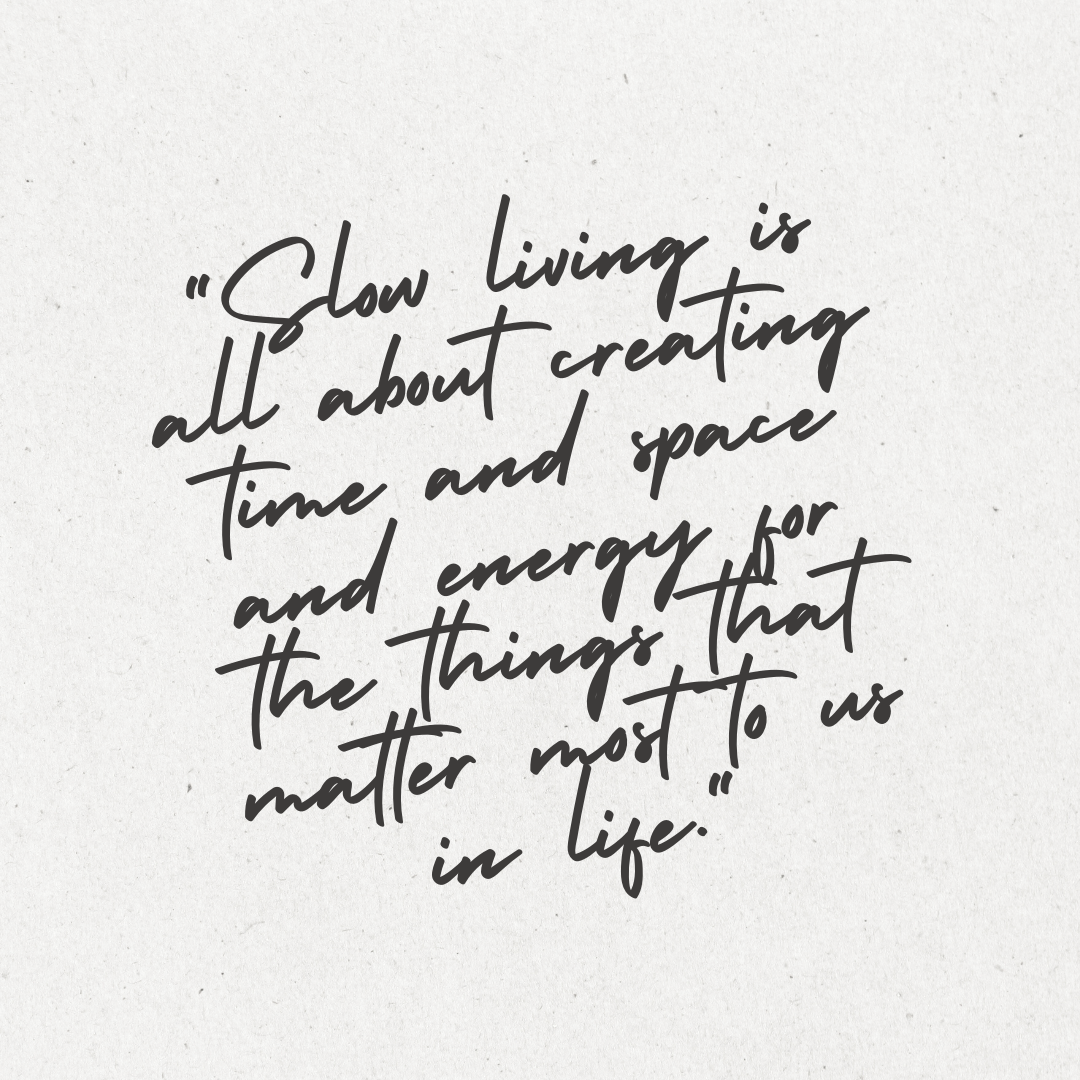 "Slow living is
all about creating
time and space
and energy for
the things that
matter most to us
in life."